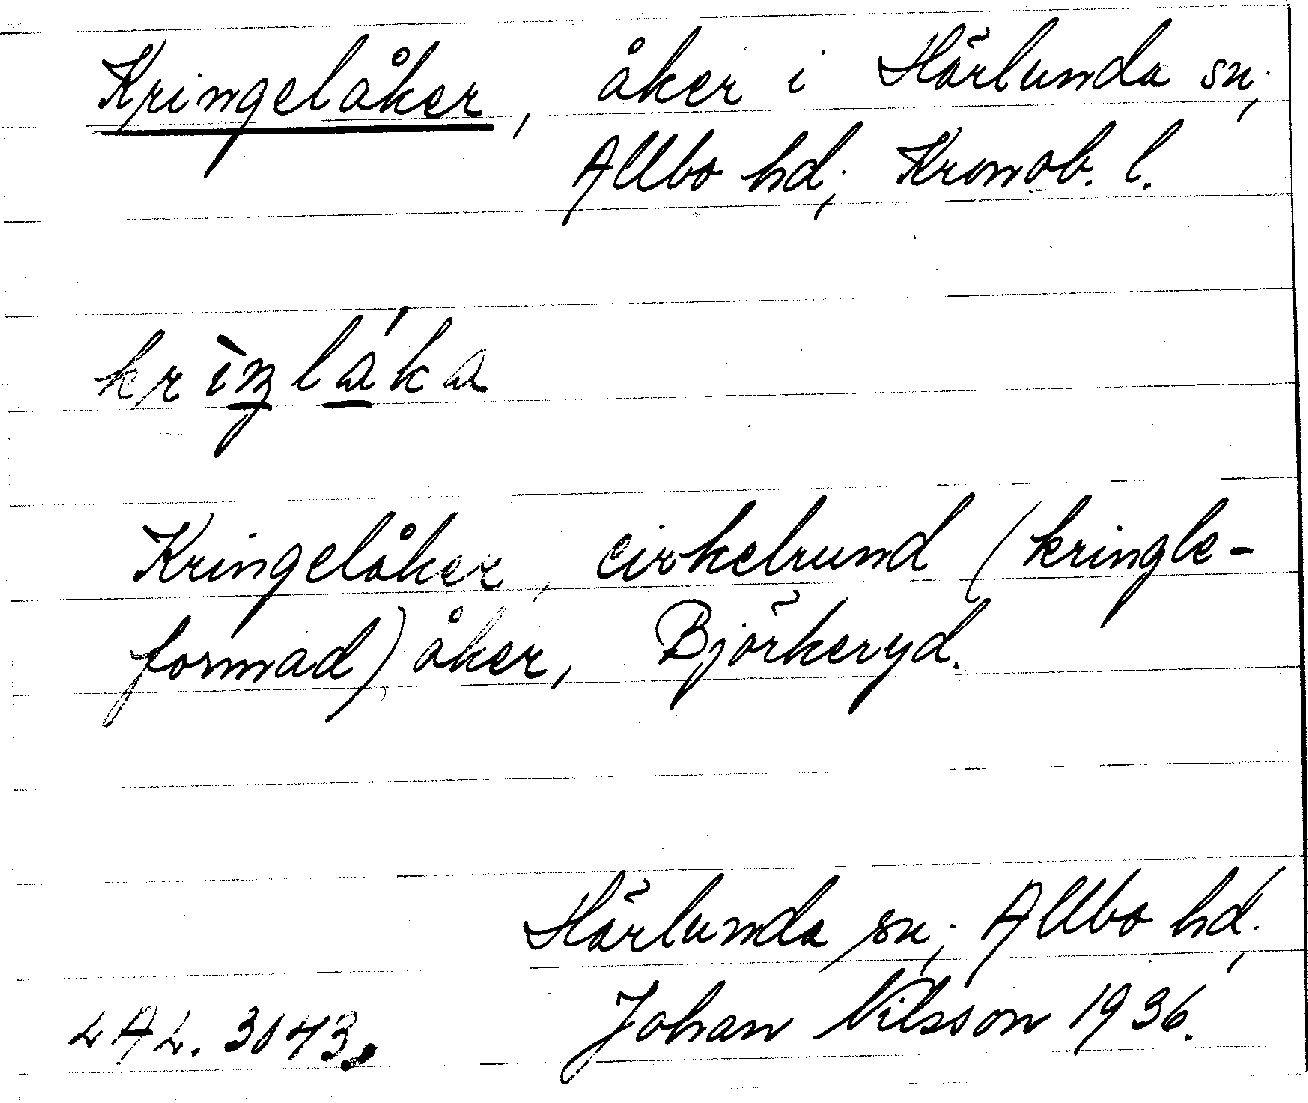 Kringelåker, åker i Härlunda sn;
Allbo hd; Kronob. l.
krìŋláka
Kringelåker, cirkelrund (kringle-
formad) åker, Björkeryd.
Härlunda sn; Allbo hd;
LAL. 3043. Johan Nilsson 1936.